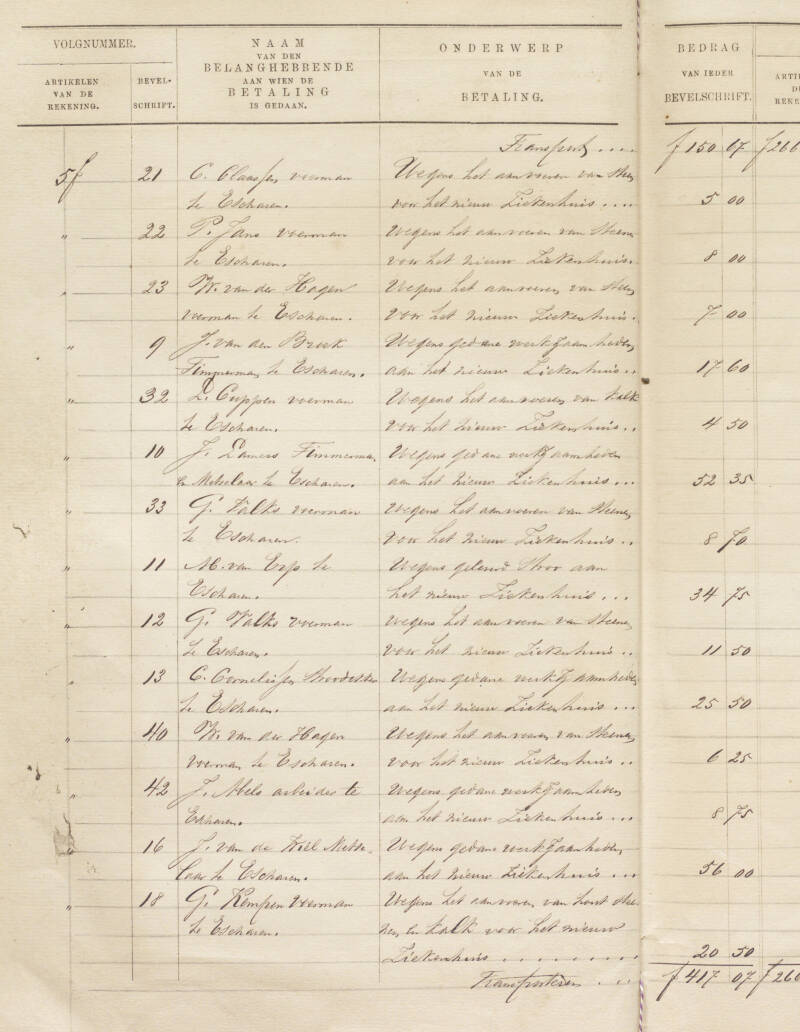 VOLGNUMMER. NAAM ONDERWERP BEDRAG
VAN DEN
ARTIKELEN BEVEL- BELANGHEBBENDE VAN DE VAN IEDER
VAN DE AAN WIEN DE
REKENING. SCHRIFT. BETALING BETALING. BEVELSCHRIFT.
IS GEDAAN.
Transport .... f 150 07 f 266
5f 21 C. Claassen voerman Wegens het aanvoeren van steen
te Escharen. voor het nieuw Ziekenhuis .... 5 00
" 22 P. Jans voerman Wegens het aanvoeren van steenen
te Escharen. voor het nieuw Ziekenhuis .. 8 00
" 23 W. van der Hagen Wegens het aanvoeren van steen
voerman te Escharen. voor het nieuw Ziekenhuis . 7 00
" 9 J. van den Broek Wegens gedane werkzaamheden
Timmerman te Escharen. aan het nieuw Ziekenhuis .. 17 60
" 32 L. Cuppen voerman Wegens het aanvoeren van kalk
te Escharen. voor het nieuw Ziekenhuis .. 4 50
" 10 J. Lamers Timmerman Wegens gedane werkzaamheden
en Metselaar te Escharen. aan het nieuw Ziekenhuis ... 52 35
" 33 G. Valks voerman Wegens het aanvoeren van steenen
te Escharen. voor het nieuw Ziekenhuis .. 8 70
" 11 M. van Erp te Wegens geleverd stroo aan
Escharen. het nieuw Ziekenhuis ... 34 75
" 12 G. Valks voerman wegens het aanvoeren van steenen
te Escharen. voor het nieuw Ziekenhuis .. 11 50
" 13 C. Cornelissen Stroodekker Wegens gedane werkzaamheden
te Escharen. aan het nieuw Ziekenhuis ... 25 50
" 40 W. van der Hagen Wegens het aanvoeren van steenen
voerman te Escharen. voor het nieuw Ziekenhuis .. 6 25
" 42 J. Mels arbeider te Wegens gedane werkzaamheden
Escharen. aan het nieuw Ziekenhuis ... 8 75
" 16 J. van de Wiel Metse- Wegens gedane werkzaamheden
laar te Escharen. aan het nieuw Ziekenhuis ... 56 00
" 18 G. Kempen voerman Wegens het aanvoeren van hout stee-
te Escharen. nen en kalk voor het nieuw
Ziekenhuis ......... 20 50
Transporteren ... f 417 07 f 266